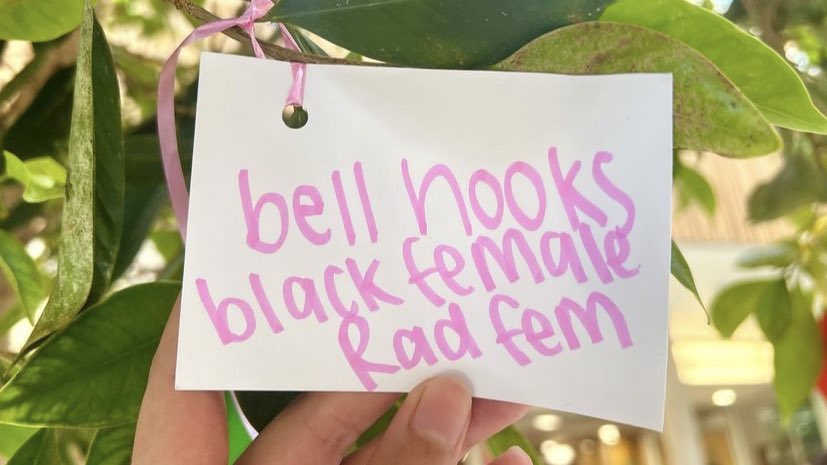 bell hooks
black female
Rad fem